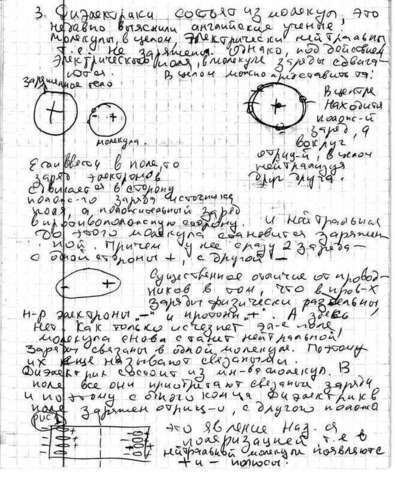 3. Диэлектрики состоят из молекул, это
недавно выяснили английские ученые
молекулы, в целом электрически нейтральны
т.е. не заряжены. Однако, под действием
электрического поля, в молекуле заряды сдвига-
ются. В целом можно представить так:
Заряженное тело
+
молекула.
В центре
находится
полож-й
заряд, а
вокруг
отриц-й, в целом
нейтрализуя
друг друга.
Если ввести в поле, то
заряд электронов
сдвигается в сторону
полож-го заряда источника
поля, а положительный заряд
в противоположную сторону. и нейтральная
до этого молекула становится заряжен
ной. Причем у нее сразу 2 заряда-
с одной стороны +, с другой -
- +
Существенное отличие от провод-
ников в том, что в пров-х
заряды физически раздельны,
н-р электроны "-" и протоны "+". А здесь
нет как только исчезнет эл-е поле
молекула снова станет нейтральной!
Заряды связаны в одной молекуле. Поэтому
их и называют связанными.
Диэлектрик состоит из мн-ва молекул. В
поле все они приобретают связанный заряд
и поэтому с одного конца диэлектрик в
поле заряжен отриц-о, с другого положо
рис
это явление наз-ся
поляризацией т.е. в
нейтральной молекуле появляются
+ и - полюсы.